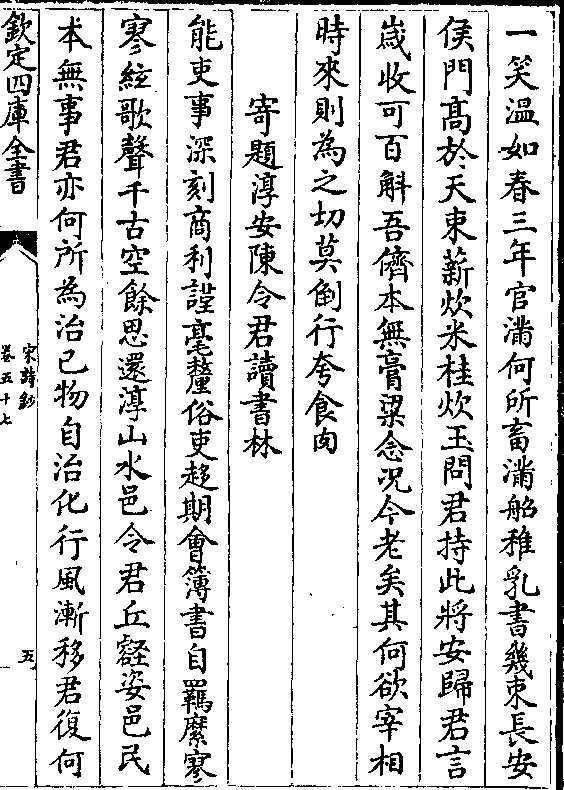 一笑溫如春三年官滿何所畜滿船稚乳書幾束長安
侯門髙於天束薪炊米桂炊玉問君持此將安歸君言
歳收可百斛吾儕本無膏粱念况今老矣其何欲宰相
時來則為之切莫倒行夸食肉
寄題淳安陳令君讀書林
能吏事深刻商利謹毫釐俗吏趍期㑹簿書自羈縻寥
寥絃歌聲千古空餘思還淳山水邑令君丘壑姿邑民
本無事君亦何所為治己物自治化行風漸移君復何
欽定四庫全書
宋詩鈔
卷五十七
五